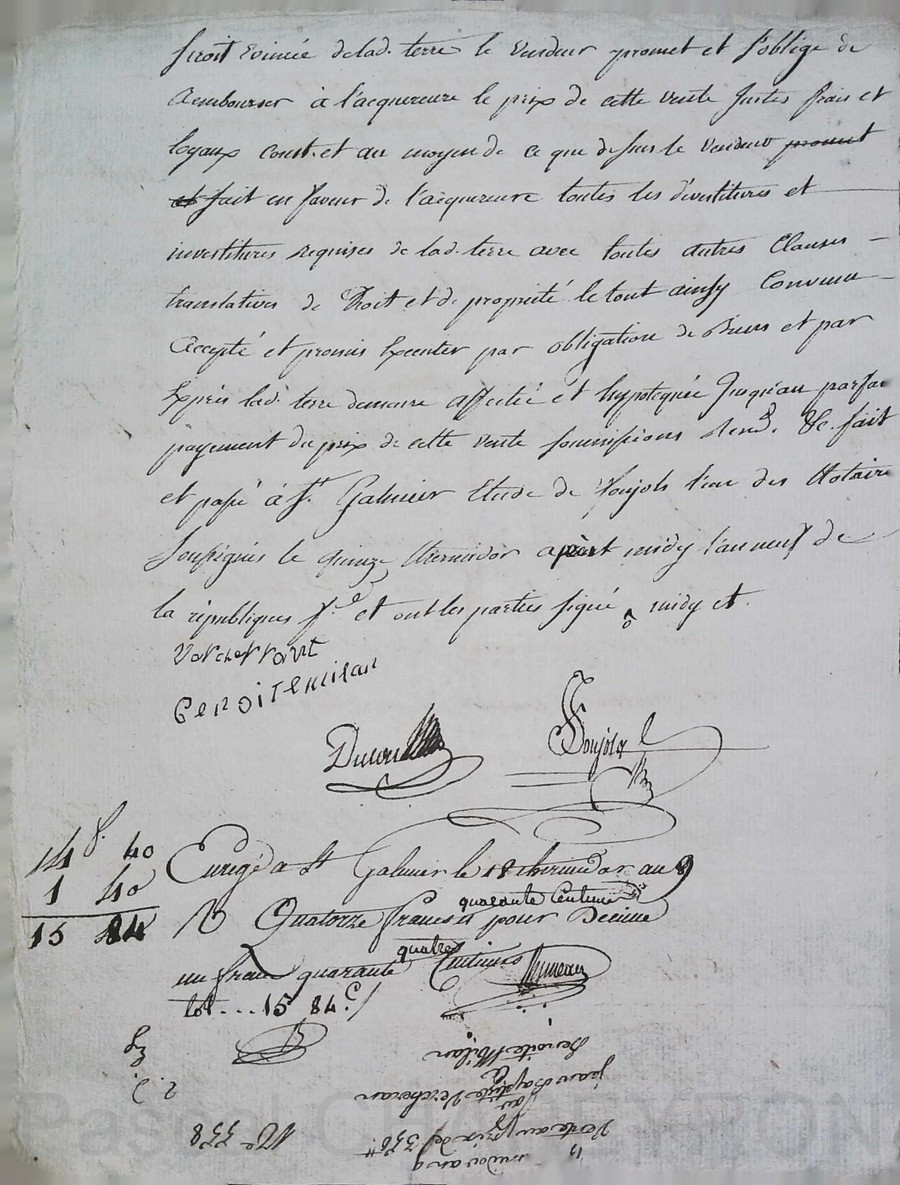 seroit évincée delad. terre le vendeur promet et s'oblige de
rembourser à l'acquereure le prix de cette vente justes frais et
loyaux coust. et au moyen de ce que dessus le vendeur promet
et fait en faveur de l'acquereure toutes les dévestitures et
investitures requises de lad. terre avec toutes autres Clauses
translatives de Droit et de proprieté le tout ainsy Convenu
Accepté et promis Executer par obligation de Biens et par
Exprès lad. terre demeure affectée et hypotequée jusqu'au parfai
payement du prix de cette vente soumissions Rend. &c. fait
et passé à St. Galmier Etude de Ponjols l'un des Notaire
Soussignés le quinze thermidor après midy l'an neuf de
la république f.se et ont les parties signé midy et
Vercherant
Benoite milan
Ponjols
14 f. 40
1 40
15 84
Enregé a St Galmier le 18 thermidor an 9
R Quatorze francs quarante Centimes et pour Decime
un franc quarante quatre Centimes
tot ... 15 84 c/
Benoite Milan
jean Baptiste Vercherin
par
Vente au prix de 336 tt
N° 338